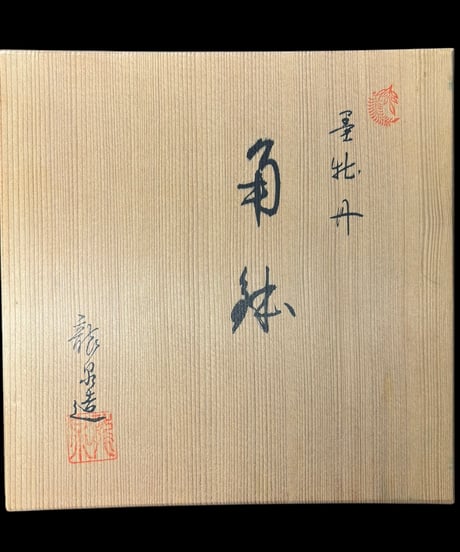 墨牡丹
角鉢
龍泉造